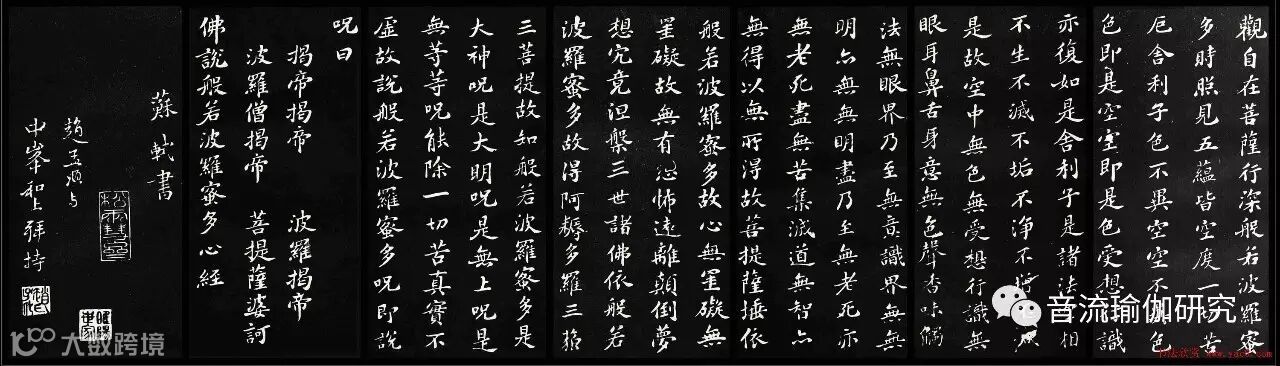 觀自在菩薩行深般若波羅蜜
多時照見五蘊皆空度一苦
厄舍利子色不異空空不色
色即是空空即是色受想識
亦復如是舍利子是諸法相
不生不滅不垢不淨不
是故空中無色無受想行識無
眼耳鼻舌身意無色聲香味觸
法無眼界乃至無意識界無無
明亦無無明盡乃至無老死亦
無老死盡無苦集滅道無智亦
無得以無所得故菩提薩埵依
般若波羅蜜多故心無罣礙無
罣礙故無有恐怖遠離顛倒夢
想究竟涅槃三世諸佛依般若
波羅蜜多故得阿耨多羅三藐
三菩提故知般若波羅蜜多是
大神呪是大明呪是無上呪是
無等等呪能除一切苦真實不
虛故說般若波羅蜜多呪即說
呪曰
揭帝揭帝 波羅揭帝
波羅僧揭帝 菩提薩婆訶
佛說般若波羅蜜多心經
蘇軾書
趙孟頫与
中峯和上拜持
松雪齋
音流瑜伽研究
大数跨境